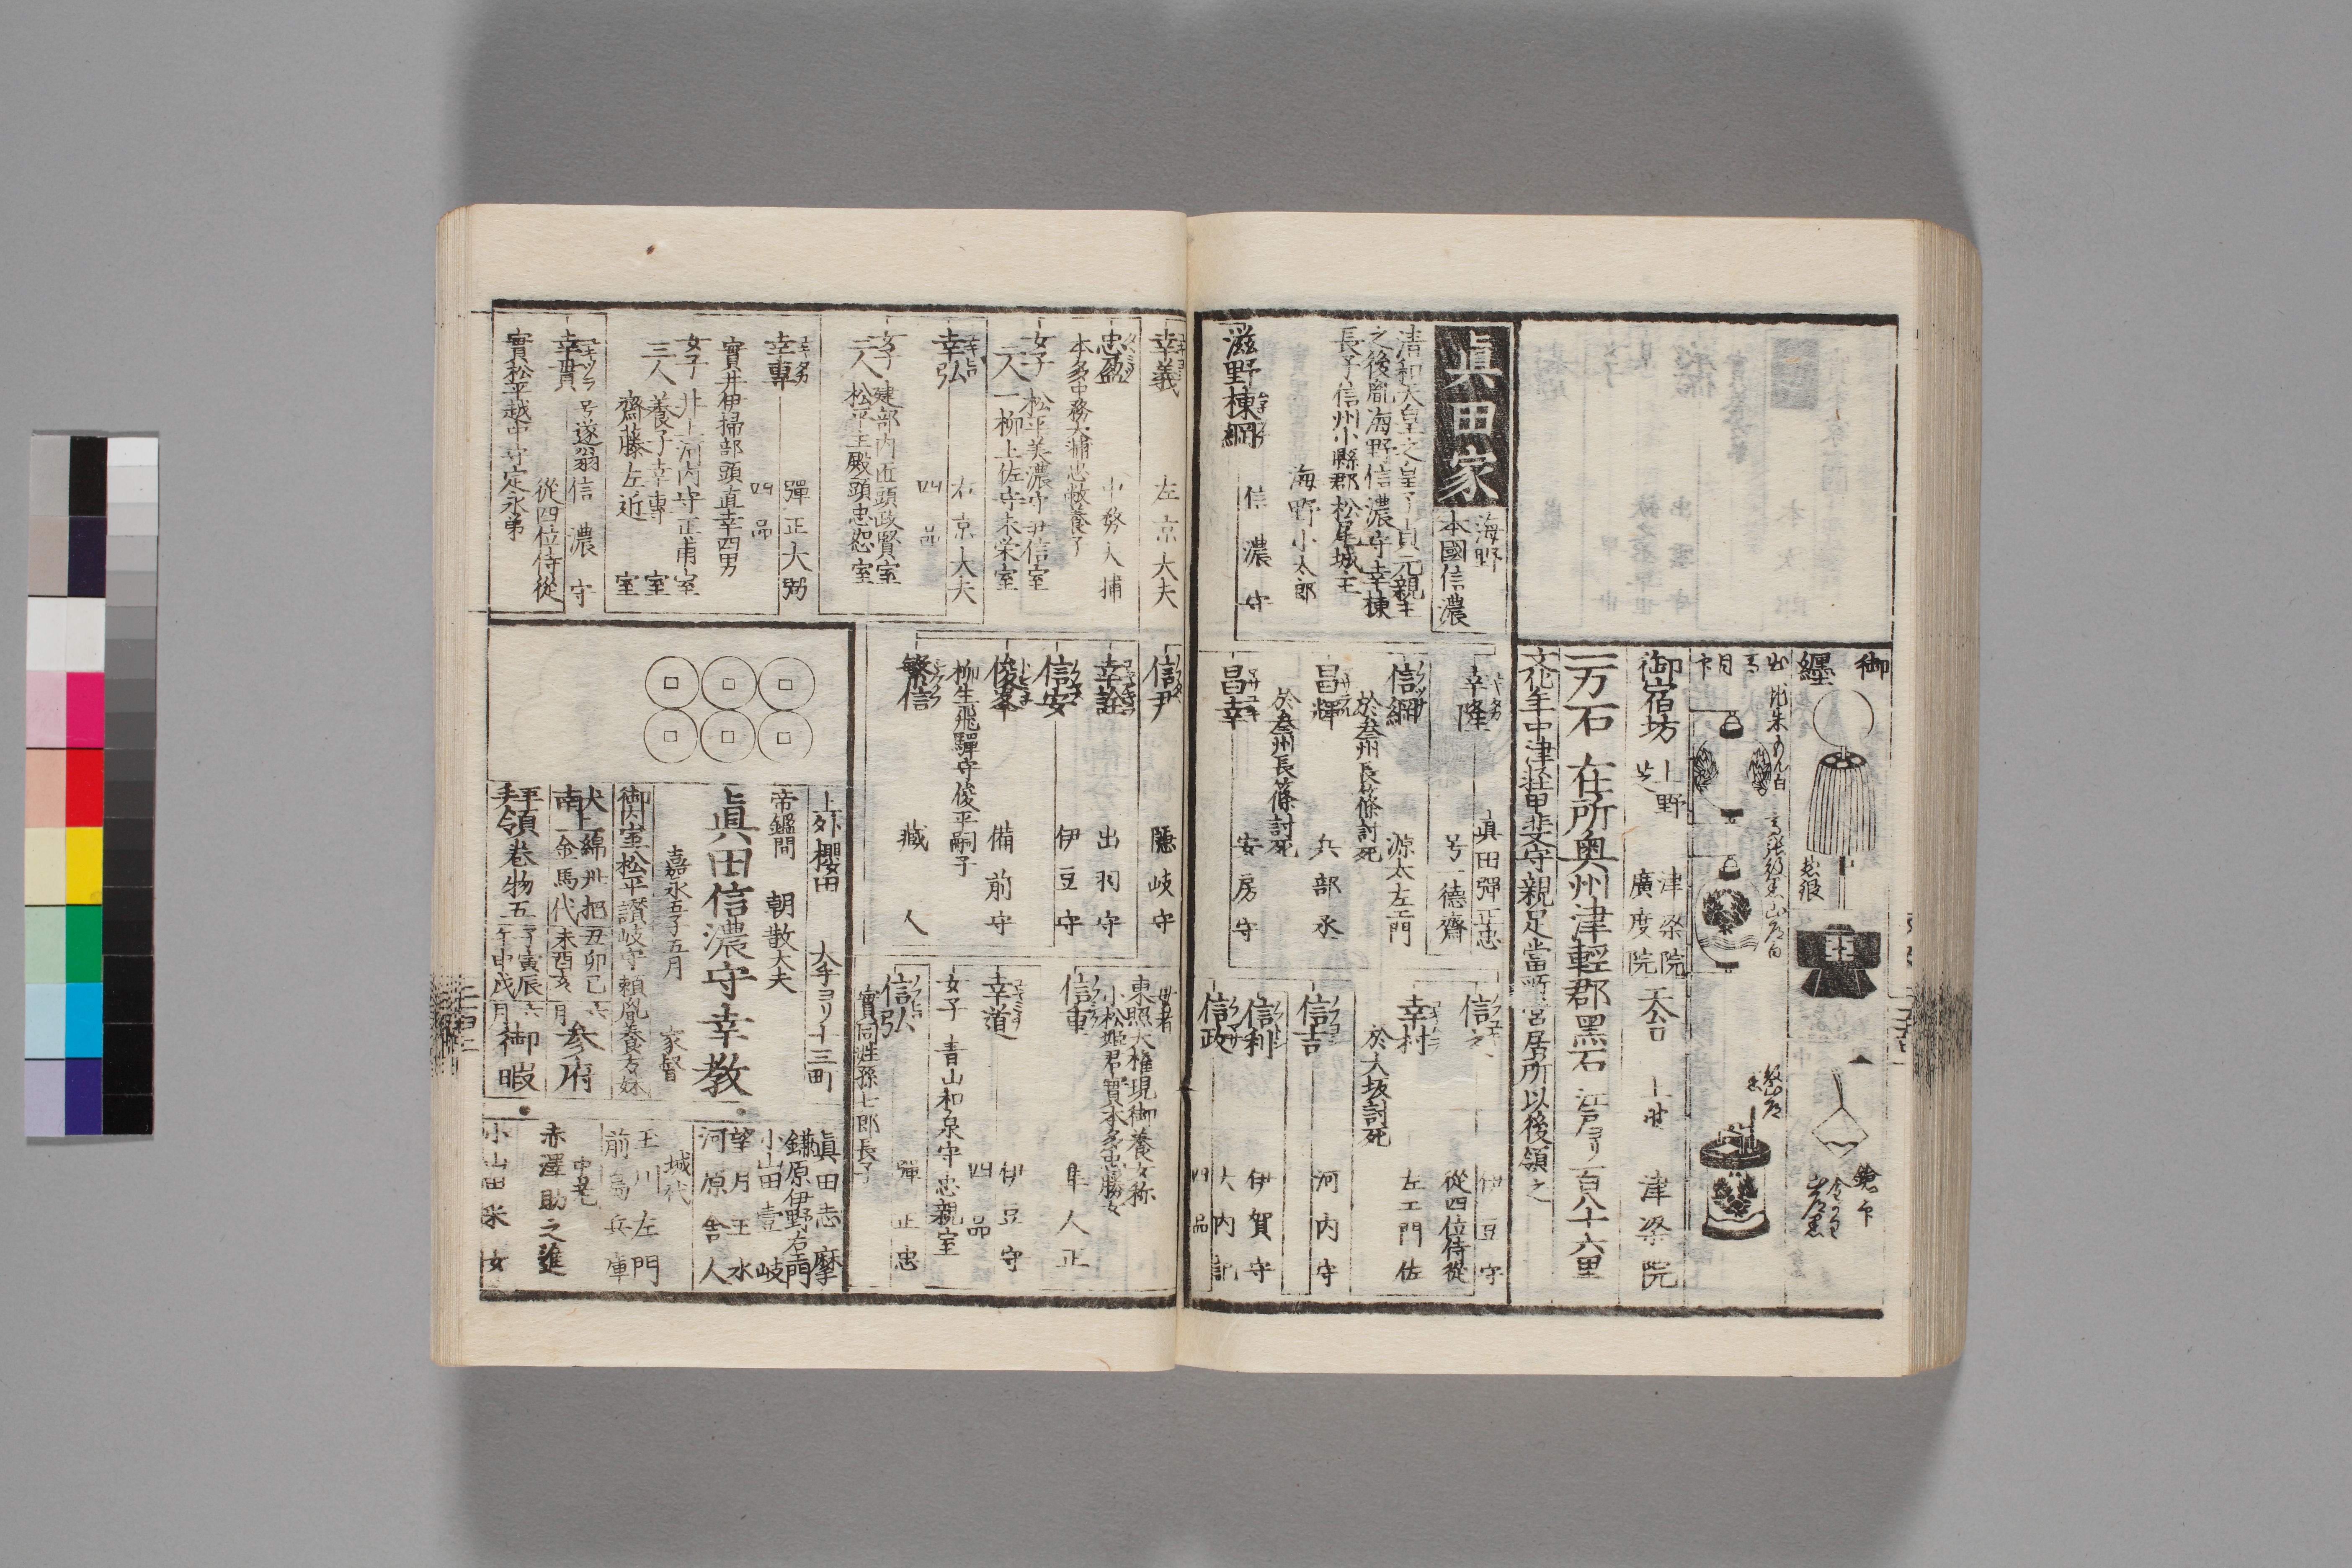 御
纏
出シ
月下
御宿坊
上野
芝
津梁院
廣度院
天台
上野
津梁院
一万石
在所奥州津輕郡黒石
江戸ヨリ
百八十六里
文化年中津軽甲斐守親足當所ニ営居所以後領之
眞田家
海野
本國信濃
清和天皇之皇子貞元親王
之後胤海野信濃守幸棟
長子信州小縣郡松尾城主
海野小太郎
滋野棟綱
信濃守
幸隆
眞田彈正忠
号一德齋
信綱
源太左エ門
於叄州長篠討死
昌輝
兵部丞
於叄州長篠討死
昌幸
安房守
信之
伊豆守
從四位侍從
幸村
左エ門佐
於大坂討死
信吉
河内守
信利
伊賀守
信政
大内記
四品
幸義
左京大夫
忠盈
中務大輔
本多中務大輔忠敞養子
女子
二人
松平美濃守尹信室
一柳土佐守末栄室
幸弘
右京大夫
四品
女子
二人
建部内匠頭政賢室
松平主殿頭忠恕室
幸專
彈正大弼
四品
實井伊掃部頭直幸四男
女子
三人
井上河内守正甫室
養子幸專室
齋藤左近室
幸貫
号遂翁
信濃守
從四位侍從
實松平越中守定永弟
信尹
隱岐守
幸詮
出羽守
信安
伊豆守
俊峯
備前守
柳生飛驒守俊平嗣子
繁信
藏人
東照大権現御養女称
小松姫君實本多忠勝女
信重
隼人正
幸道
伊豆守
四品
女子
青山和泉守忠親室
信弘
彈正忠
實同姓孫七郎長子
上外櫻田
大手ヨリ十三町
帝鑑間
朝散大夫
眞田信濃守幸教
嘉永五子五月
家督
御内室松平讃岐守頼胤養方妹
献上綿卅把
南一金馬代
丑卯巳
未酉亥
六月
参府
拝領巻物五
子寅辰
午申戌
六月
御暇
眞田志摩
鎌原伊野右エ門
小山田壹岐
望月主水
河原舎人
城代
玉川左門
前島兵庫
中老
赤澤助之進
小山田采女